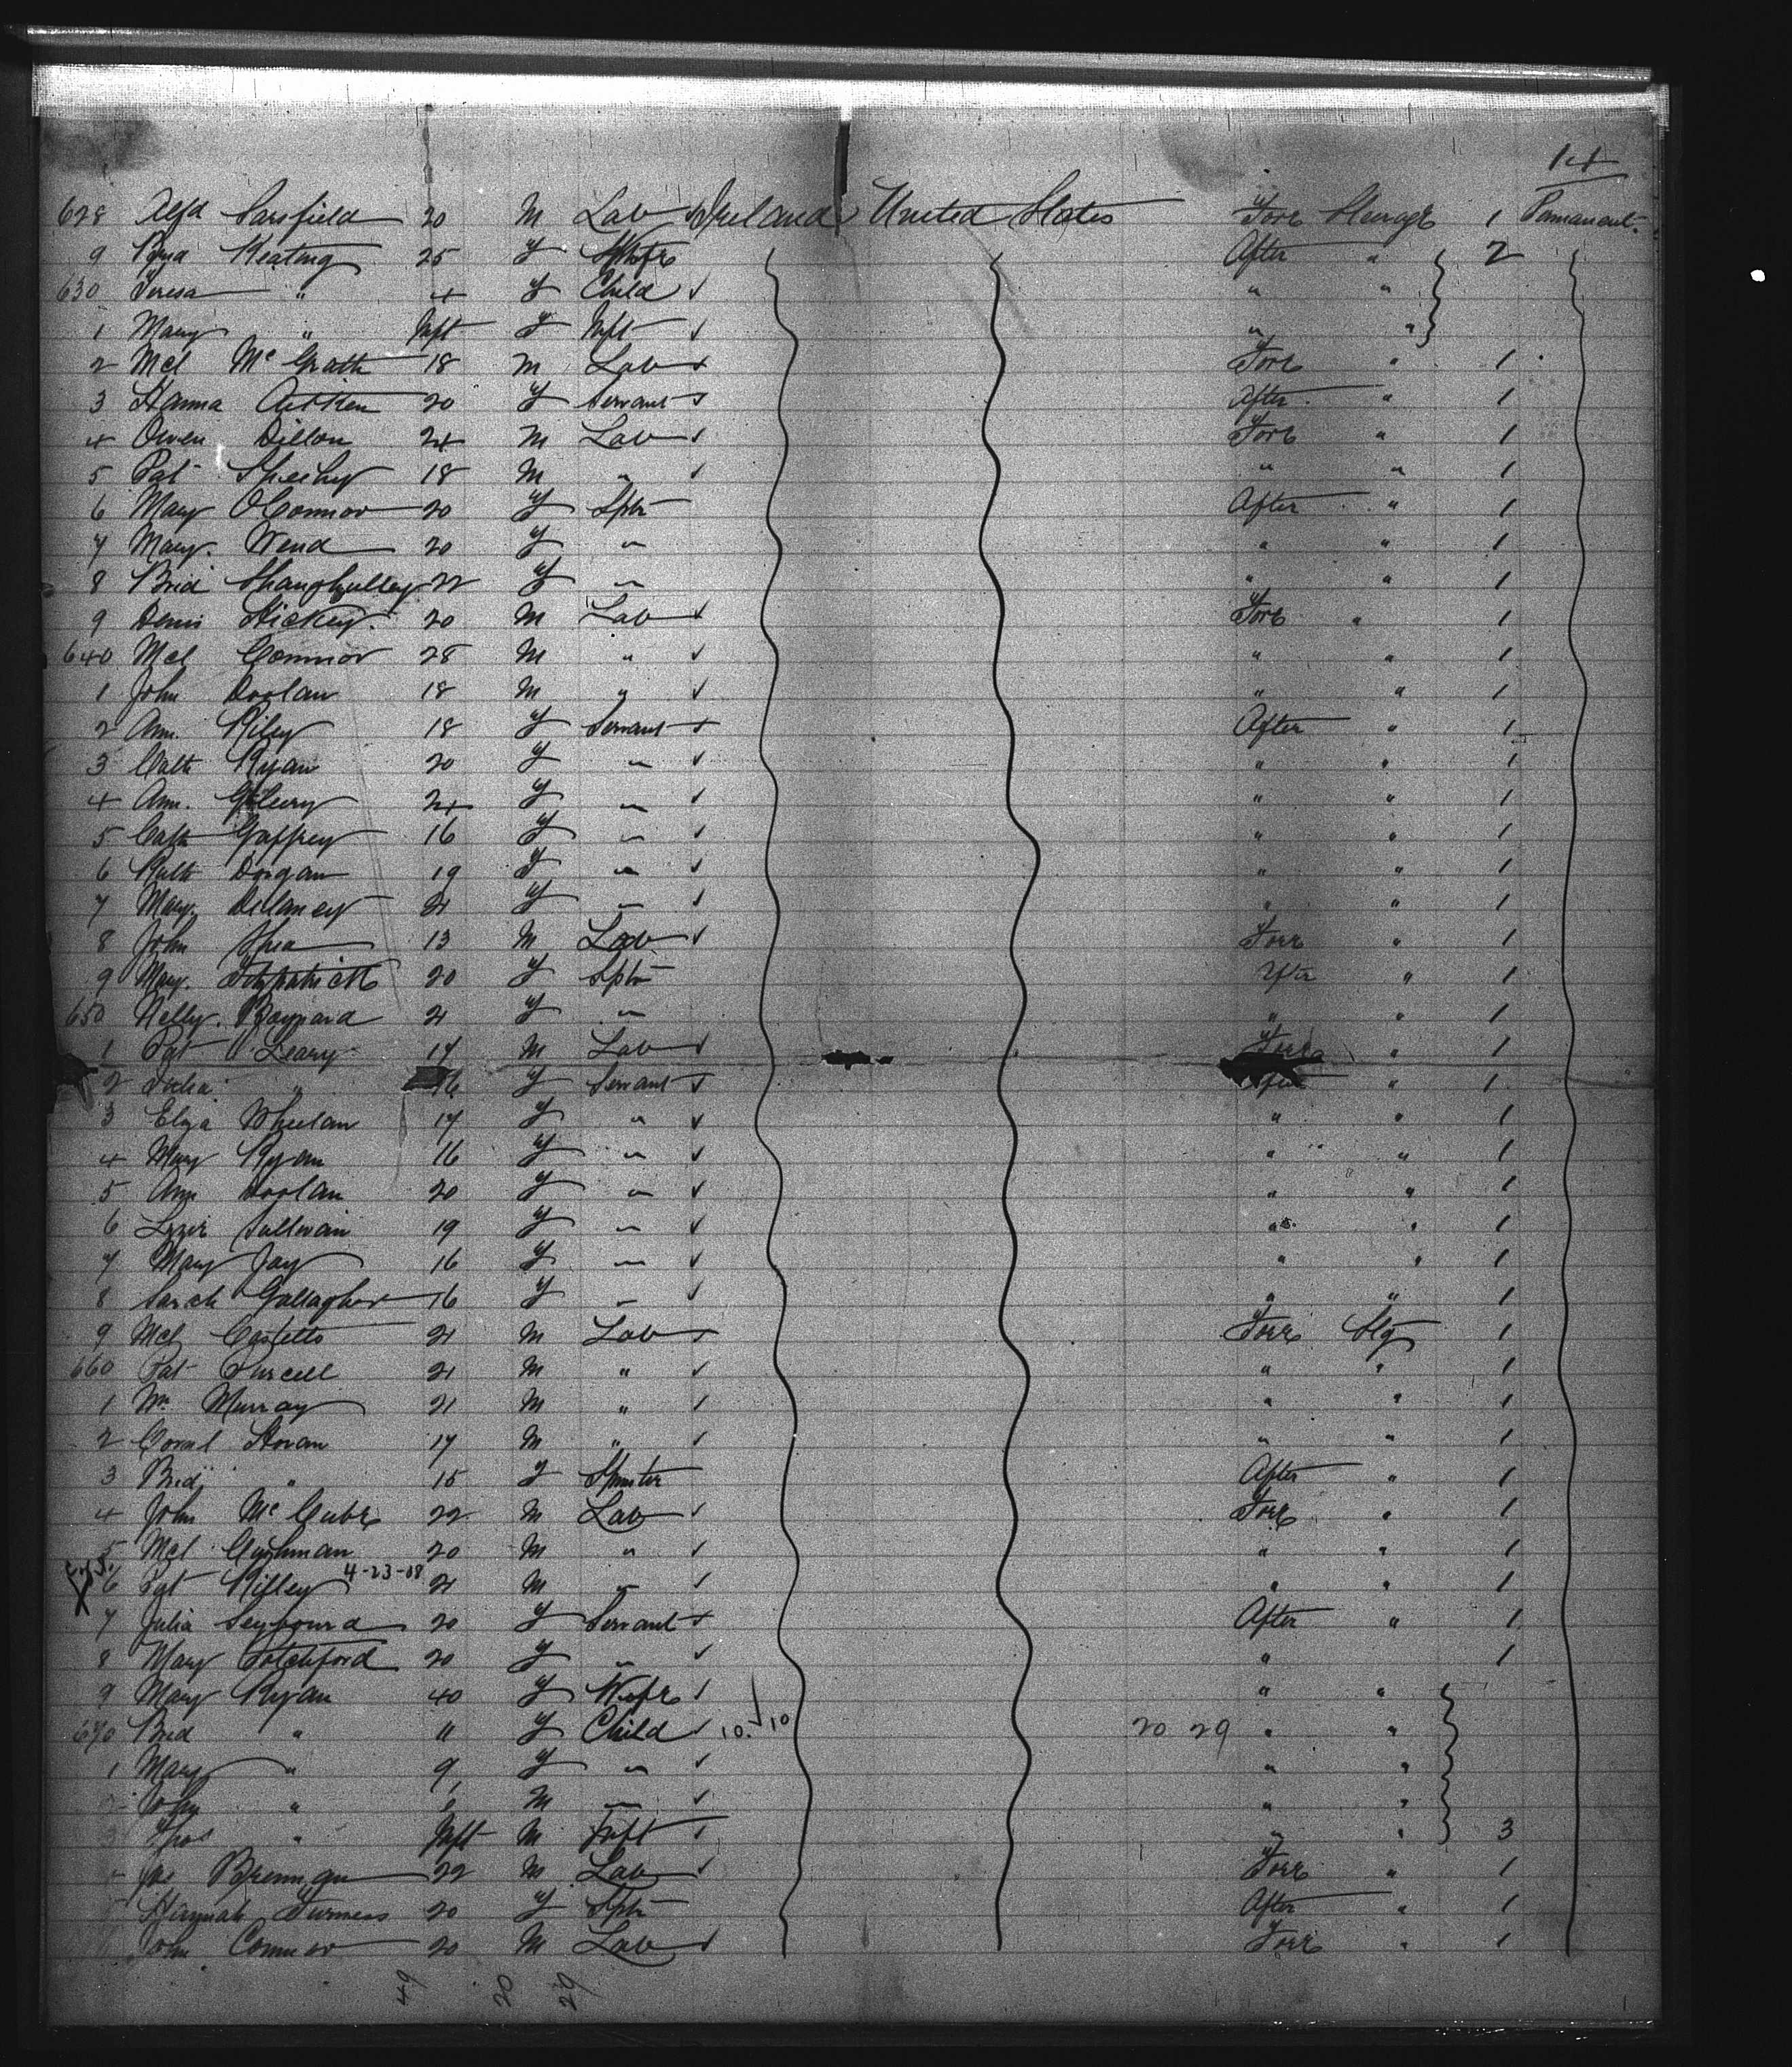 14
628 Alfd Sarsfield 20 M Lab Ireland United States Fore Steerage 1 Permanent.
9 Brid Keating 25 F Wife After " 2
630 Teresa " 4 F Child " "
1 Mary " Inft F Inft " "
2 Mcl McGrath 18 M Lab Fore " 1
3 Hanna Aitken 20 F Servant After " 1
4 Owen Dillon 24 M Lab Fore " 1
5 Pat Sheehy 18 M " " " 1
6 Mary OConnor 20 F Sptr After " 1
7 Mary 20 F " " " 1
8 Brid 22 F " " " 1
9 Denis Hickey 20 M Lab Fore " 1
640 Mcl Connor 28 M " " " 1
1 John Doolan 18 M " " " 1
2 Ann Riley 18 F Servant After " 1
3 Cath Ryan 20 F " " " 1
4 Ann 24 F " " " 1
5 Cath Gaffney 16 F " " " 1
6 Kath Dorgan 19 F " " " 1
7 Mary Dellaney 21 F " " " 1
8 John Shea 13 M Lab Fore " 1
9 Mary Fitzpatrick 20 F Sptr After " 1
650 Nelly 21 F " " " 1
1 Pat Leary 17 M Lab Fore " 1
2 Julia " 16 F Servant After " 1
3 Eliza Wheelan 17 F " " " 1
4 Mary Ryan 16 F " " " 1
5 Ann Doolan 20 F " " " 1
6 Lizzie Sullivan 19 F " " " 1
7 Mary Joy 16 F " " " 1
8 Sarah Gallagher 16 F " " " 1
9 Mcl 21 M Lab Fore Stg 1
660 Pat Purcell 21 M " " " 1
1 Wm Murray 21 M " " " 1
2 Horan 17 M " " " 1
3 Brid " 15 F Spinster After " 1
4 John McCabe 22 M Lab Fore " 1
5 Mcl 20 M " " " 1
6 Pat Rilley 4-23-08 21 M " " " 1
7 Julia 20 F Servant After " 1
8 Mary Fotchford 20 F " " 1
9 Mary Ryan 40 F Wife " "
670 Brid " 11 F Child 10 10 20 29 " "
1 Mary " 9 F " " "
2 John " 6 M " " "
3 Thos " Inft M Inft " " 3
Jas Brennan 22 M Lab Fore " 1
5 Hannah Furness 20 F Sptr After " 1
John Connor 20 M Lab Fore " 1
49 20 29